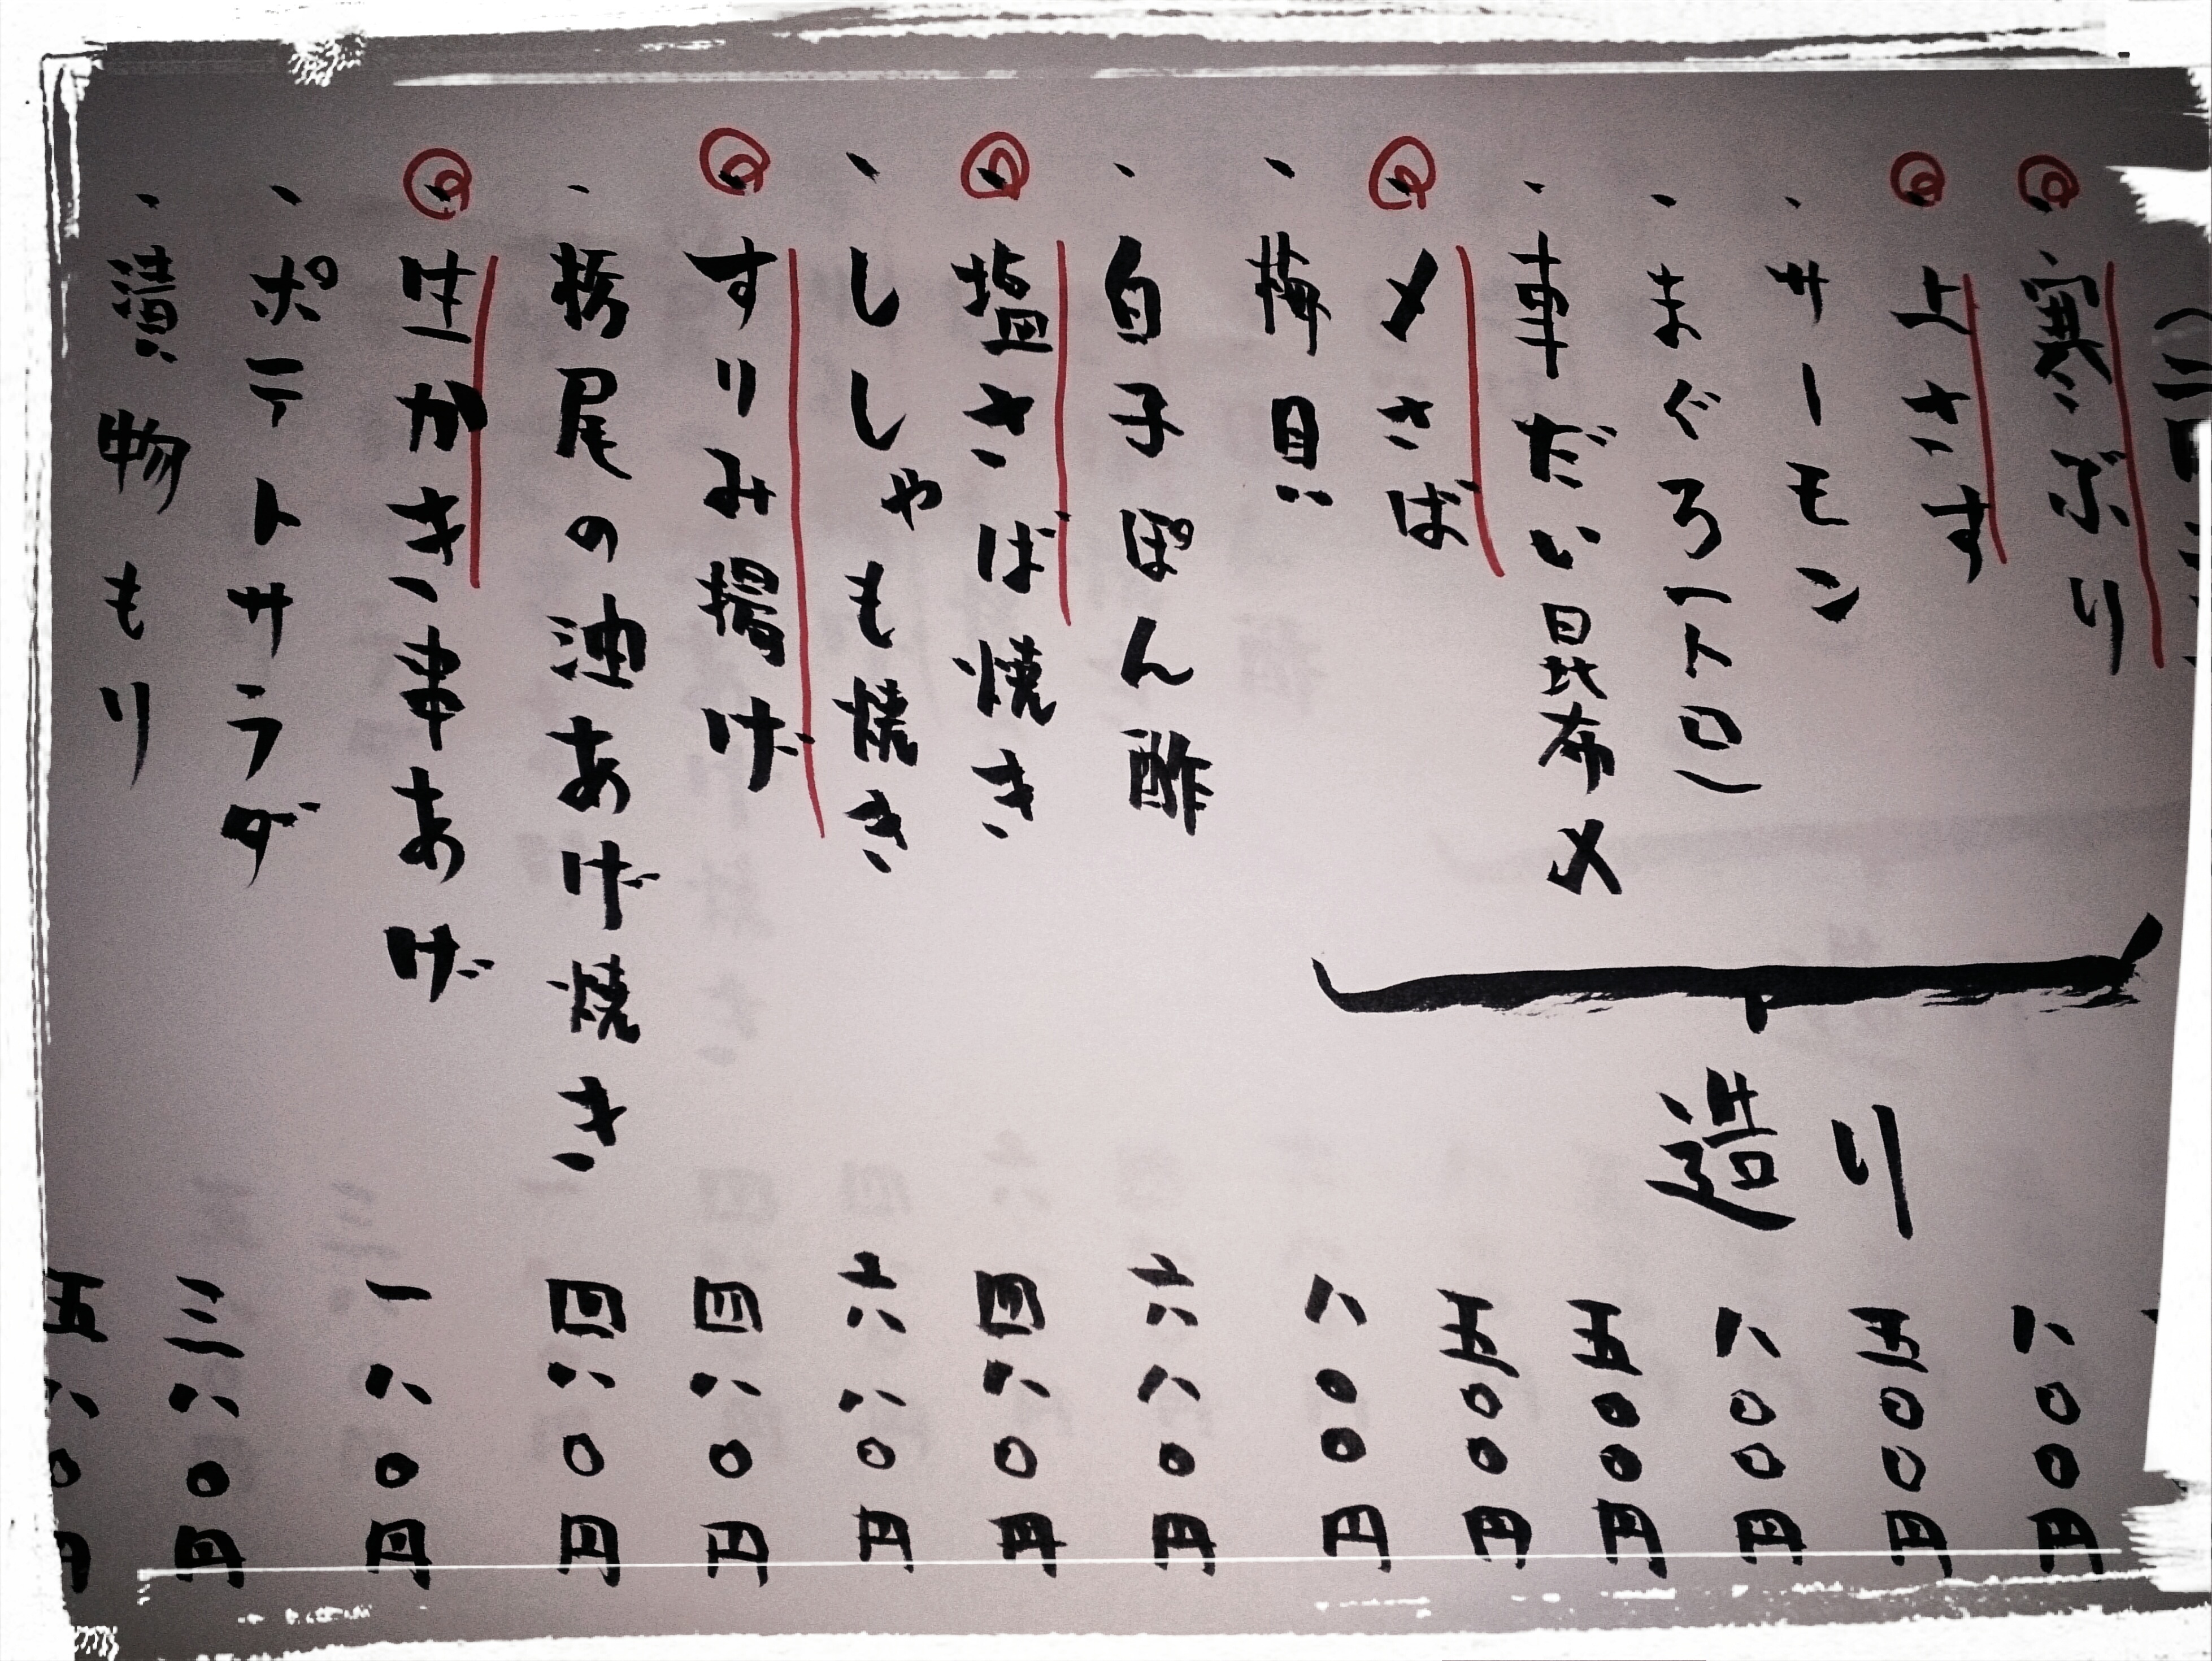 寒ぶり
上さす 八〇〇円
サーモン 五〇〇円
まぐろ(トロ) 八〇〇円
車だい昆布〆 五〇〇円
〆さば 五〇〇円
梅貝 八〇〇円
造り
白子ぽん酢 六八〇円
塩さば焼き 四八〇円
ししゃも焼き 六八〇円
すりみ揚げ 四八〇円
栃尾の油あげ焼き 四八〇円
生かき串あげ 一八〇円
ポテトサラダ 三八〇円
漬物もり 五八〇円